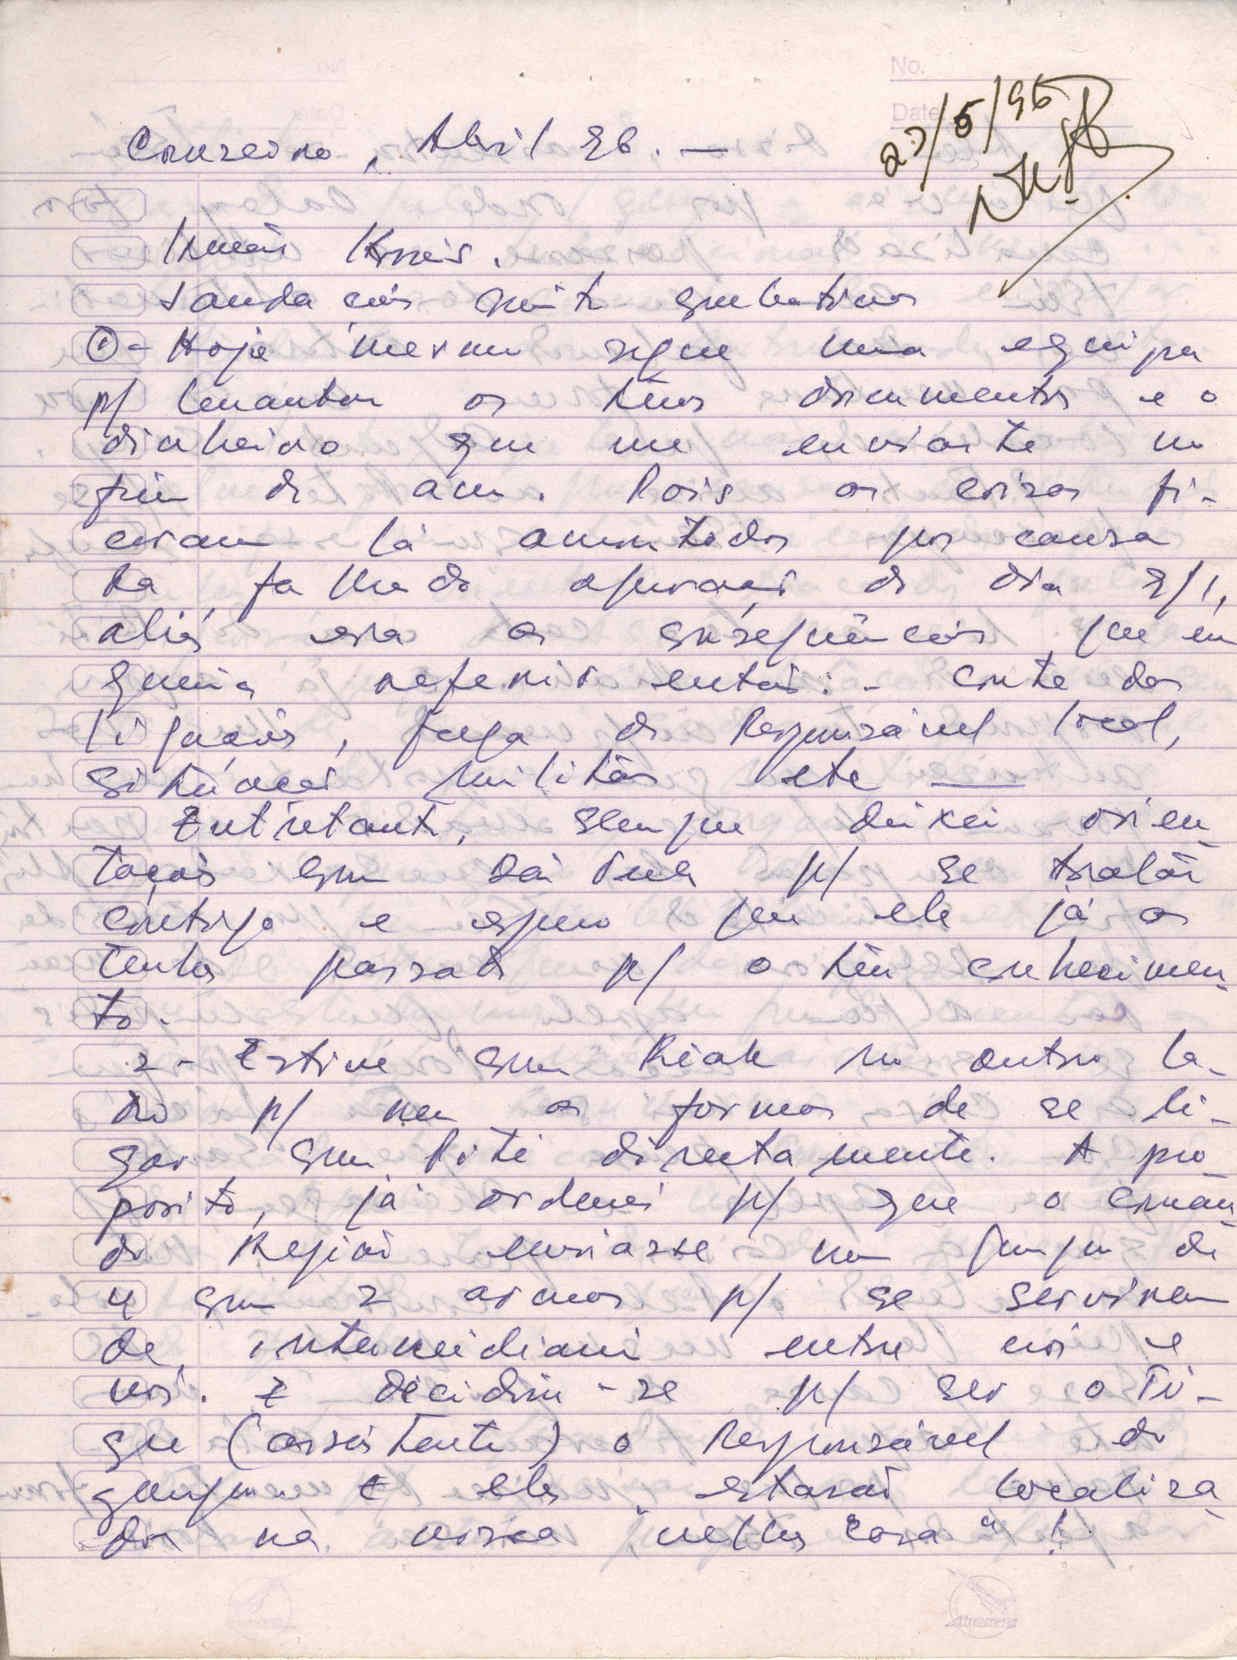 No.
Date
23/5/96
Cruzeiro, Abril 96. —
Irmão Konis.
Saudações muito combativas
①- Hoje mesmo segue uma equipa
p/ levantar os teus documentos e o
dinheiro que me enviaste no
fim do ano. Pois as coisas fi-
caram lá amontoadas por causa
da falhada operação do dia 9/1,
aliás era as consequências que eu
queria referir então: - corte das
ligações, fuga do Responsável local,
situação militar etc —
Entretanto, sempre deixei orien-
tações com Daí Tula p/ se tratar
contigo e espero que ele já as
tenha passado p/ o teu conhecimen-
to.
2- Estive com Reak no outro la-
do p/ ver as formas de se li-
gar com Piti directamente. A pro-
posito, já ordenei p/ que o Coman-
do Região enviasse um grupo de
4 com 2 armas p/ se servirem
de intermediario entre nós e
vós. E decidiu-se p/ ser o Ti-
gre (assistente) o Responsável do
grupo e eles estarão localiza-
dos na nossa "velha casa"!